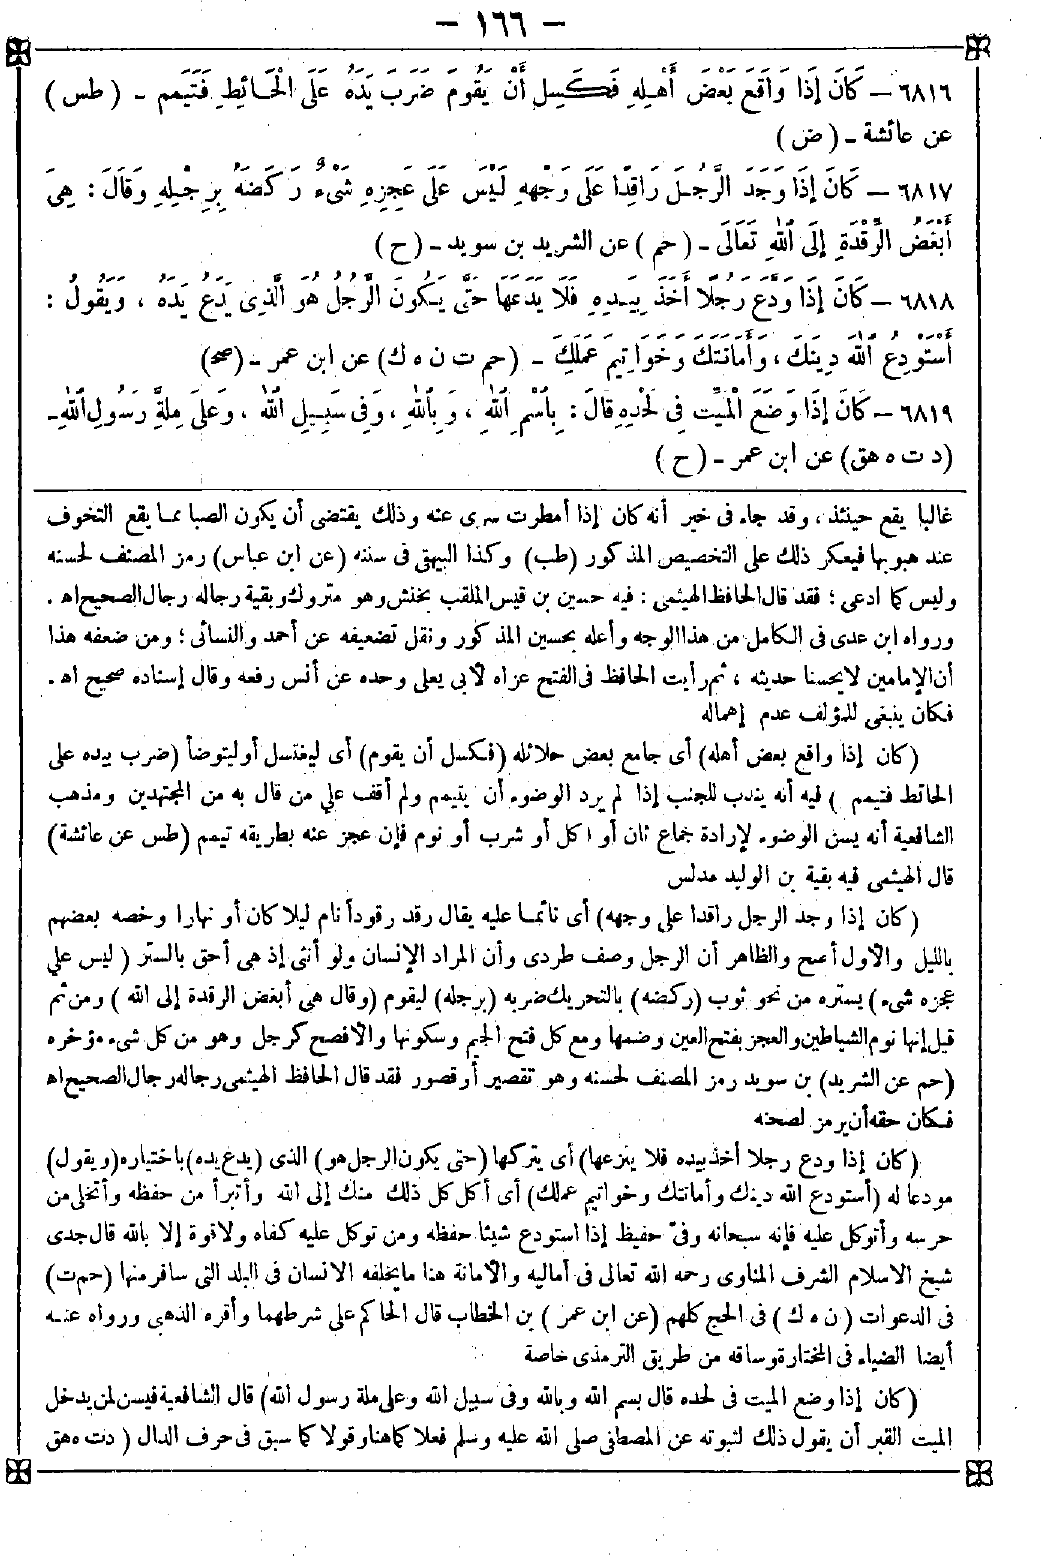 – ١٦٦ –
٦٨١٦ – كَانَ إِذَا وَاقَعَ بَعْضَ أَهْلِهِ فَكَسِلَ أَنْ يَقُومَ ضَرَبَ يَدَهُ عَلَى الْحَائِطِ فَتَيَمم - ( طس )
عن عائشة - ( ض )
٦٨١٧ – كَانَ إِذَا وَجَدَ الرَّجُلَ رَاقِدًا عَلَى وَجْهِهِ لَيْسَ عَلَى عَجِزِهِ شَيْءٌ رَكَضَهُ بِرِجْلِهِ وَقَالَ : هِيَ
أَبْغَضُ الرِّقْدَةِ إِلَى اللهِ تَعَالَى - ( حم ) عن الشريد بن سويد - ( ح )
٦٨١٨ – كَانَ إِذَا وَدَّعَ رَجُلًا أَخَذَ بِيَدِهِ فَلَا يَدَعَهَا حَتَّى يَكُونَ الرَّجُلُ هُوَ الَّذِى يَدَعُ يَدَهُ ، وَيَقُولُ :
أَسْتَوْدِعُ اللهَ دِينَكَ ، وَأَمَانَتَكَ وَخَوَاتِيمَ عَمَلِكَ - ( حم ت ن ه ك ) عن ابن عمر - (صح)
٦٨١٩ – كَانَ إِذَا وَضَعَ الْمَيِّتَ فِى لَحْدِهِ قَالَ : بِاسْمِ اللهِ ، وَبِاللهِ ، وَفِى سَبِيلِ اللهِ ، وَعَلَى مِلَّةِ رَسُولِ اللهِ -
(د ت ه هق) عن ابن عمر - ( ح )
غالبا يقع حينئذ ، وقد جاء فى خبر أنه كان إذا أمطرت سرى عنه وذلك يقتضى أن يكون الصبا مما يقع التخوف
عند هبوبها فيعكر ذلك على التخصيص المذكور (طب) وكذا البيهقى فى سننه (عن ابن عباس) رمز المصنف لحسنه
وليس كما ادعى ؛ فقد قال الحافظ الهيثمى : فيه حسين بن قيس الملقب بخنش وهو متروك وبقية رجاله رجال الصحيح اه .
ورواه ابن عدى فى الكامل من هذا الوجه وأعله بحسين المذكور ونقل تضعيفه عن أحمد والنسائى ؛ ومن ضعفه هذا
أن الإمامين لا يحسنا حديثه ، ثم رأيت الحافظ فى الفتح عزاه لأبى يعلى وحده عن أنس رفعه وقال إسناده صحيح اه .
فكان ينبغى للمؤلف عدم إهماله
(كان إذا واقع بعض أهله) أى جامع بعض حلائله (فكسل أن يقوم) أى ليغتسل أو ليتوضأ (ضرب بيده على
الحائط فتيمم ) فيه أنه يندب للجنب إذا لم يرد الوضوء أن يتيمم ولم أقف على من قال به من المجتهدين ومذهب
الشافعية أنه يسن الوضوء لإرادة جماع ثان أو أكل أو شرب أو نوم فإن عجز عنه بطريقه تيمم (طس عن عائشة)
قال الهيثمى فيه بقية بن الوليد مدلس
(كان إذا وجد الرجل راقدا على وجهه) أى نائمًا عليه يقال رقد رقودًا نام ليلا كان أو نهارا وخصه بعضهم
بالليل والأول أصح والظاهر أن الرجل وصف طردى وأن المراد الإنسان ولو أنثى إذ هى أحق بالستر ( ليس على
عجزه شىء ) يستره من نحو ثوب (ركضه) بالتحريك ضربه (برجله) ليقوم (وقال هى أبغض الرقدة إلى الله ) ومن ثم
قيل إنها نوم الشياطين والعجز بفتح العين وضمها ومع كل فتح الجيم وسكونها والأفصح كرجل وهو من كل شىء مؤخره
(حم عن الشريد) بن سويد رمز المصنف لحسنه وهو تقصير أو قصور فقد قال الحافظ الهيثمى رجاله رجال الصحيح اه
فكان حقه أن يرمز لصحته
(كان إذا ودع رجلا أخذ بيده فلا ينزعها) أى يتركها (حتى يكون الرجل هو) الذى (يدع يده) باختياره (ويقول)
مودعا له (أستودع الله دينك وأمانتك وخواتيم عملك) أى أكل كل ذلك منك إلى الله وأتبرأ من حفظه وأتخلى من
حرسه وأتوكل عليه فإنه سبحانه وفىّ حفيظ إذا استودع شيئا حفظه ومن توكل عليه كفاه ولا قوة إلا بالله قال جدى
شيخ الاسلام الشرف المناوى رحمه الله تعالى فى أماليه والأمانة هنا ما يخلفه الانسان فى البلد التى سافر منها (حم ت)
فى الدعوات ( ن ه ك ) فى الحج كلهم (عن ابن عمر ) بن الخطاب قال الحاكم على شرطهما وأقره الذهبى ورواه عنه
أيضا الضياء فى المختارة وساقه من طريق الترمذى خاصة
(كان إذا وضع الميت فى لحده قال بسم الله وبالله وفى سبيل الله وعلى ملة رسول الله) قال الشافعية فيسن لمن يدخل
الميت القبر أن يقول ذلك لثبوته عن المصطفى صلى الله عليه وسلم فعلا كما هنا وقولا كما سبق فى حرف الدال ( د ت ه هق